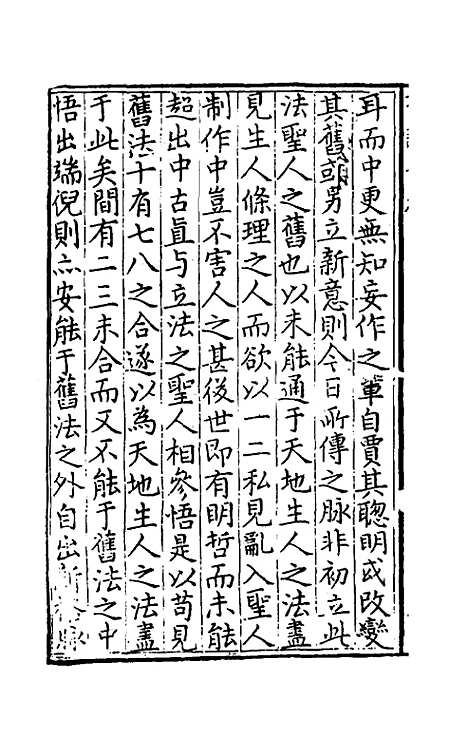 耳而中更無知妄作之軰自賈其聰明或改變
其舊或另立新意則今日所傳之脉非初立此
法聖人之舊也以未能通于天地生人之法盡
見生人條理之人而欲以一二私見亂入聖人
制作中豈不害人之甚後世即有明哲而未能
超出中古眞与立法之聖人相參悟是以苟見
舊法十有七八之合遂以為天地生人之法盡
于此矣間有二三未合而又不能于舊法之中
悟出端倪則亦安能于舊法之外自出新